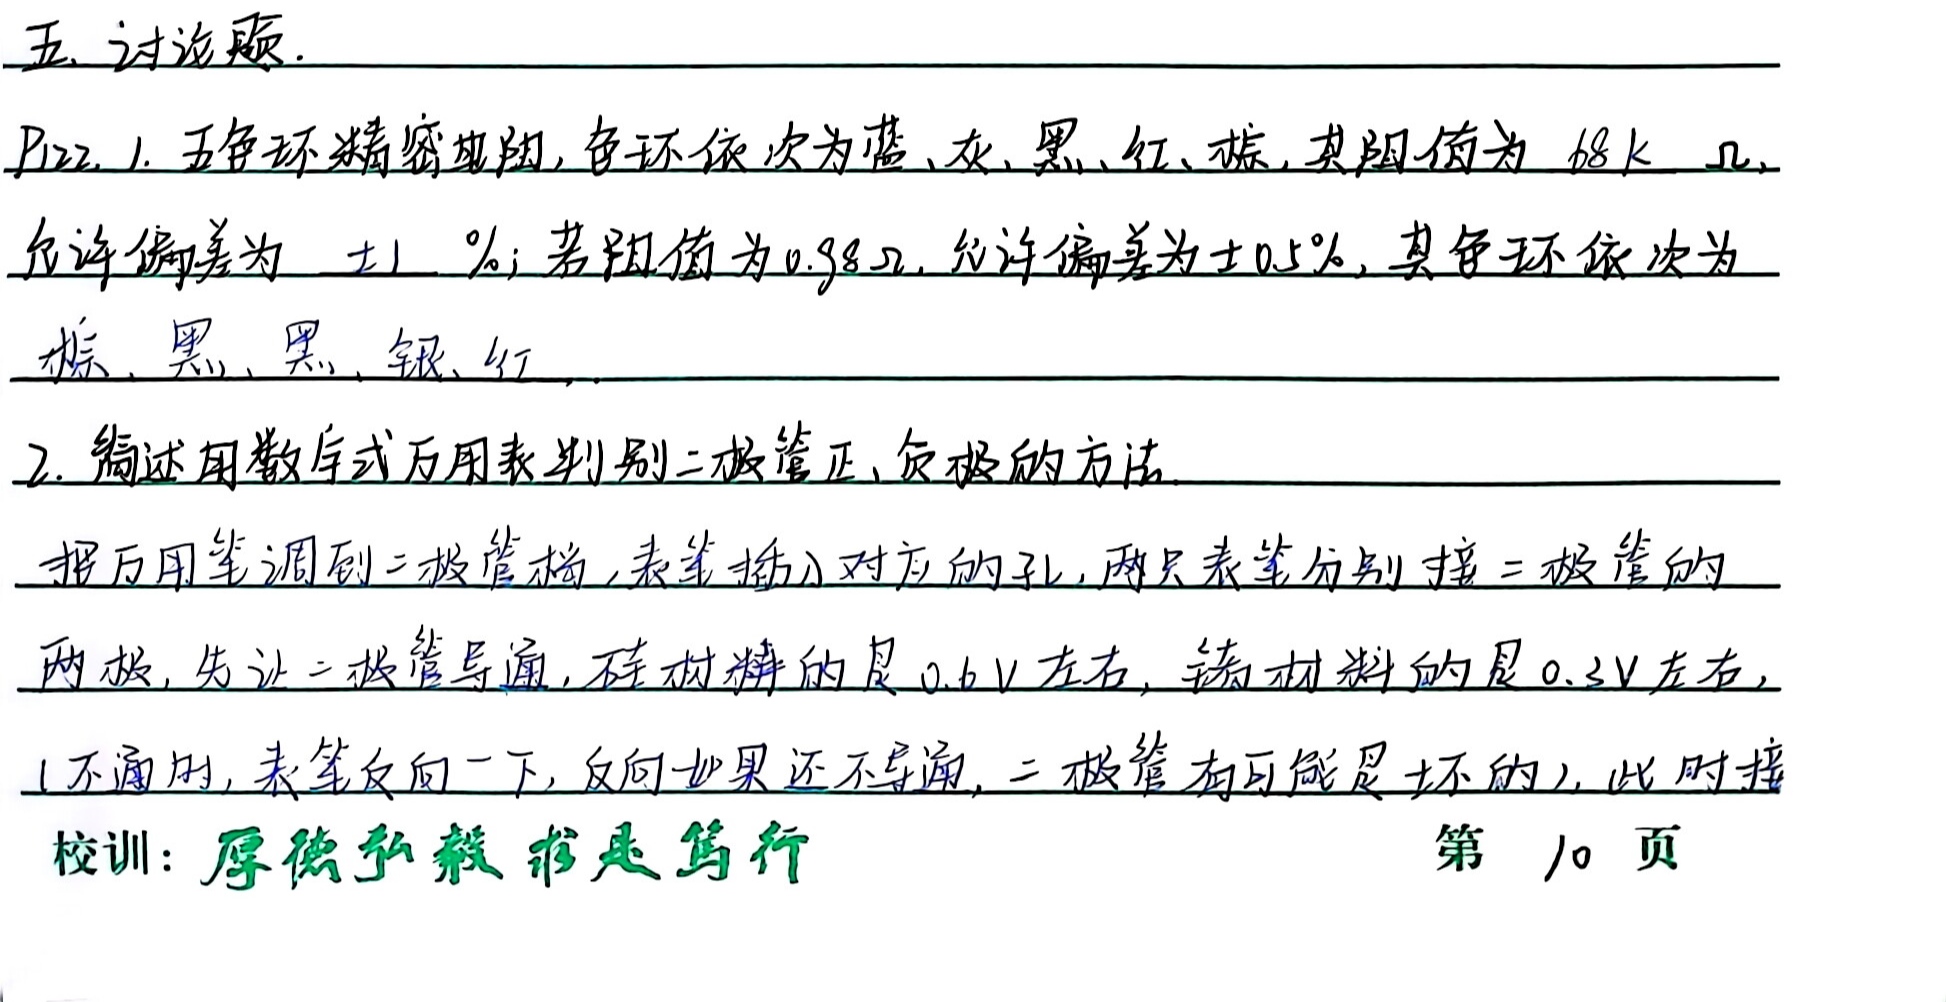 五、讨论题.
P122. 1. 五色环精密电阻,色环依次为蓝、灰、黑、红、棕,其阻值为 68k Ω,
允许偏差为 ±1 %;若阻值为0.98Ω,允许偏差为±0.5%,其色环依次为
棕、黑、黑、银、红.
2. 简述用数字式万用表判别二极管正、负极的方法.
把万用笔调到二极管档,表笔插入对应的孔,两只表笔分别接二极管的
两极,先让二极管导通,硅材料的是0.6V左右,锗材料的是0.3V左右,
(不通时,表笔反向一下,反向如果还不导通,二极管有可能是坏的),此时接
校训:厚德弘毅 求是笃行
第 10 页